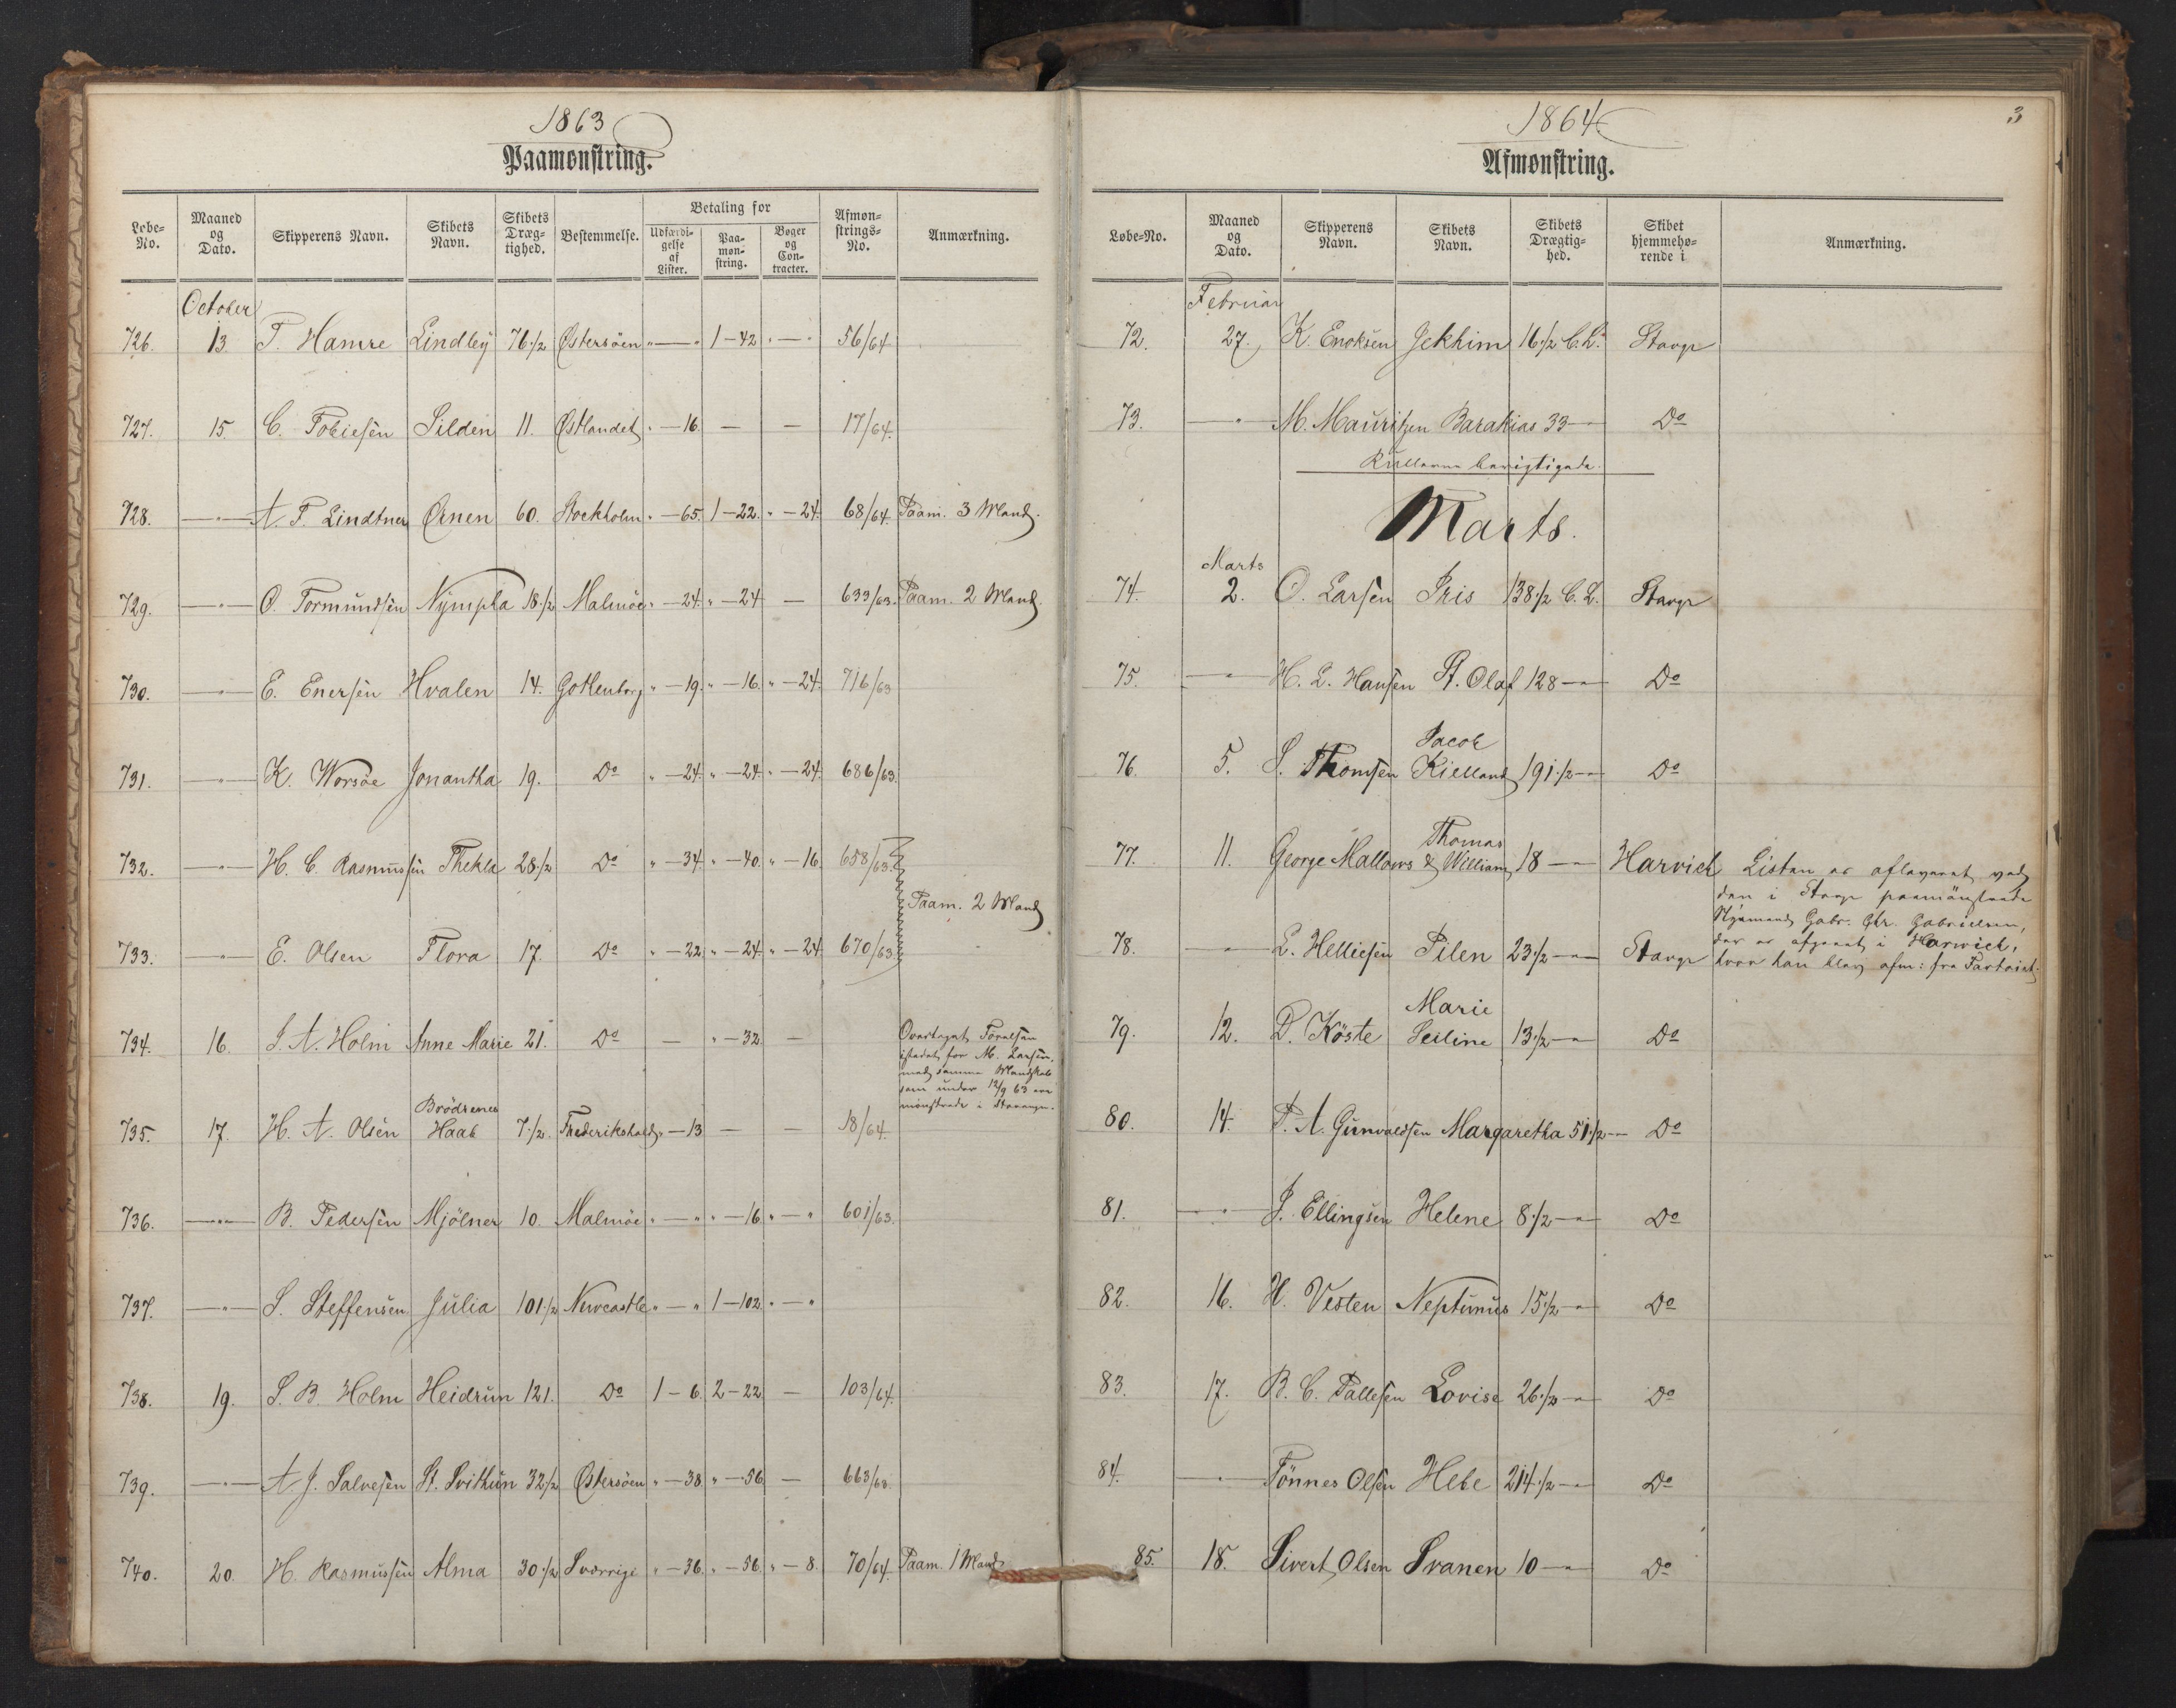 1863
Paamønstring.
Løbe-No. | Maaned og Dato. | Skipperens Navn. | Skibets Navn. | Skibets Dræg-tighed. | Bestemmelse. | Betaling for | Udfærdi-gelse af Lister. | Paa-møn-string. | Bøger og Con-tracter. | Afmøn-strings-No. | Anmærkning.
October
726. 13. T. Hamre Lindley 76 1/2 Østersöen " — " 1 - 42 " — " 56/64
727. 15. C. Tobiesen Silden 11. Østlandet " — 16. — — 17/64.
728. — " — A. F. Lindtner Ørnen 60. Stockholm " — 65. 1 — 22. " — 24. 68/64. Paam. 3 Mand.
729. — " — O. Tormundsen Nympha 18 1/2 Malmöe " — 24. " — 24 — 633/63. Paam. 2 Mand.
730. — " — E. Enersen Hvalen 14. Gothenborg " — 19. " — 16. " — 24. 716/63
731. — " — K. Worsöe Jonantha 19. Do " — 24. " — 24. " — 24. 686/63.
732. — " — H. C. Rasmussen Thekla 28 1/2 Do " — 34. " — 40. " — 16. 658/63.
Paam. 2 Mand
733. — " — E. Olsen Flora 17. Do " — 22. " — 24. " — 24. 670/63.
734. 16. J. A. Holm Anne Marie 21. Do — " — 32. —
Overtaget Förelsen
istedet for M. Larsen,
med samme Mandskab
som under 12/9 63 ere
mönstrede i Stavanger.
735. 17. H. A. Olsen Brödrenes Haab 7 1/2. Frederikshald " — 13 — — 18/64.
736. — " — B. Pedersen Mjölner 10. Malmöe " — " " — 16. " — " 601/63.
737. — " — S. Steffensen Julia 101 1/2 Newcastle " — " 1 — 102. " — "
738. 19. S. B. Holm Heidrun 121. Do 1 - 6. 2 - 22. — 103/64.
739. — " — A. J. Salvesen St. Svithun 32 1/2 Østersöen " — 38. " — 56. — 663/63.
740. 20. H. Rasmussen Alma 30 1/2 Sverrige " — 36. " — 56. " — 8. 70/64. Paam. 1 Mand
1864.
3
Afmønstring.
Løbe-No. | Maaned og Dato. | Skipperens Navn. | Skibets Navn. | Skibets Drægtig-hed. | Skibet hjemmehø-rende i | Anmærkning.
Februar
72. 27. K. Enoksen Jekhim 16 1/2 C. L. Stavgr
73. — " — M. Mauritzen Barakias 33 — " Do
Rullerne berigtigede.
Marts.
Marts
74. 2. O. Larsen Iris 138 1/2 C. L. Stavgr
75. — " — H. L. Hansen St. Olaf 128 — " Do
76. 5. S. Thomsen Jacob Kielland 191 1/2 — " Do
77. 11. George Mallows Thomas & William 18 — " Harvich
Listen er afleveret ved
den i Stavgr paamönstrede
Styrmand Gabr. Chr. Gabrielsen,
der er afgaaet i Harwich,
hvor han blev afm: fra Fartöiet.
78. — " — L. Helliesen Pilen 23 1/2 — " Stavgr
79. 12. D. Köste Marie Seiline 13 1/2 — " Do
80. 14. T. A. Gunvaldsen Margaretha 51 1/2 — " Do
81. — " — J. Ellingsen Helene 8 1/2 — " Do
82. 16. H. Vesten Neptunus 15 1/2 — " Do
83. 17. B. C. Tallesen Lovise 26 1/2 — " Do
84. — " — Tönnes Olsen Hebe 214 1/2 — " Do
85. 18. Sivert Olsen Svanen 10 — " Do